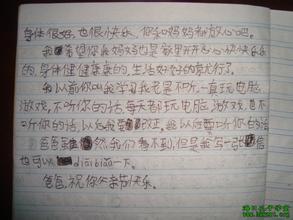 身体很好,也很快乐,你和妈妈都放心吧。
我希望你和妈妈也是
的,身体健健康康的,生活好好的就行了。
我以前你叫我学习我老是不听一直玩电脑
游戏,不听你的话每天都玩电脑游戏,
听你的话,以后我改正。我以后要听你的话
爸爸虽然我们看不到,但是我写一信
也可以 diǎi biǎo 一下。
爸爸,祝你父亲节快乐。